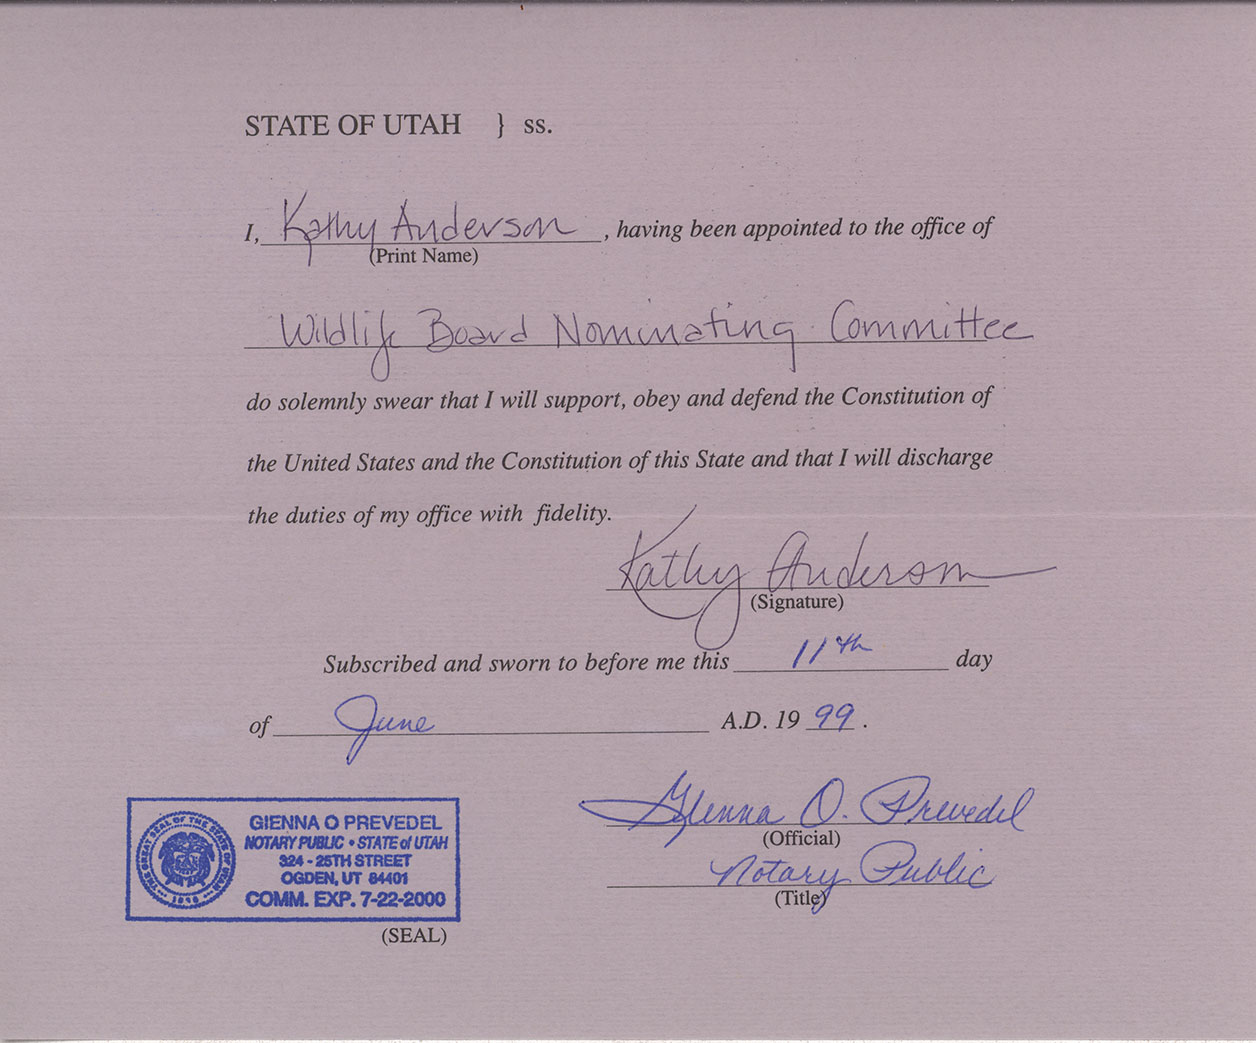 STATE OF UTAH } ss.
I, Kathy Anderson, having been appointed to the office of
(Print Name)
Wildlife Board Nominating Committee
do solemnly swear that I will support, obey and defend the Constitution of
the United States and the Constitution of this State and that I will discharge
the duties of my office with fidelity.
Kathy Anderson
(Signature)
Subscribed and sworn to before me this 11th day
of June A.D. 19 99.
Glenna O. Prevedel
(Official)
Notary Public
(Title)
THE GREAT SEAL OF THE STATE OF UTAH
1896
GIENNA O PREVEDEL
NOTARY PUBLIC • STATE of UTAH
324 - 25TH STREET
OGDEN, UT 84401
COMM. EXP. 7-22-2000
(SEAL)